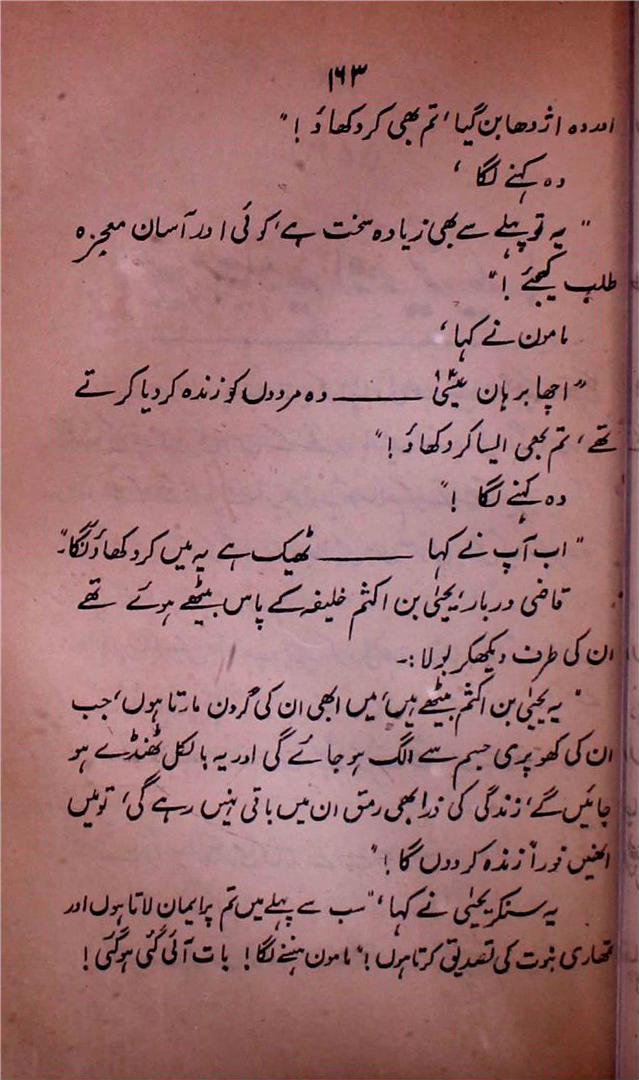 ۱۶۳
اور وہ اژدھا بن گیا، تم بھی کر دکھاؤ!"
وہ کہنے لگا،
"یہ تو پہلے سے بھی زیادہ سخت ہے، کوئی اور آسان معجزہ
طلب کیجئے!"
مامون نے کہا،
"اچھا برہان عیسیٰؑ ——— وہ مردوں کو زندہ کر دیا کرتے
تھے، تم بھی ایسا کر دکھاؤ!"
وہ کہنے لگا!"
"اب آپ نے کہا ——— ٹھیک ہے یہ میں کر دکھاؤنگا۔"
قاضی دربار، یحیٰی بن اکثم خلیفہ کے پاس بیٹھے ہوئے تھے
ان کی طرف دیکھکر بولا:۔
"یہ یحیٰی بن اکثم بیٹھے ہیں، میں ابھی ان کی گردن مارتا ہوں، جب
ان کی کھوپری جسم سے الگ ہو جائے گی اور یہ بالکل ٹھنڈے ہو
جائیں گے، زندگی کی ذرا بھی رمق ان میں باقی نہیں رہے گی، تو میں
انھیں فوراً زندہ کر دوں گا!"
یہ سنکر یحیٰی نے کہا، "سب سے پہلے میں تم پر ایمان لاتا ہوں اور
تمھاری نبوت کی تصدیق کرتا ہوں!" مامون ہنسنے لگا! بات آئی گئی ہو گئی!